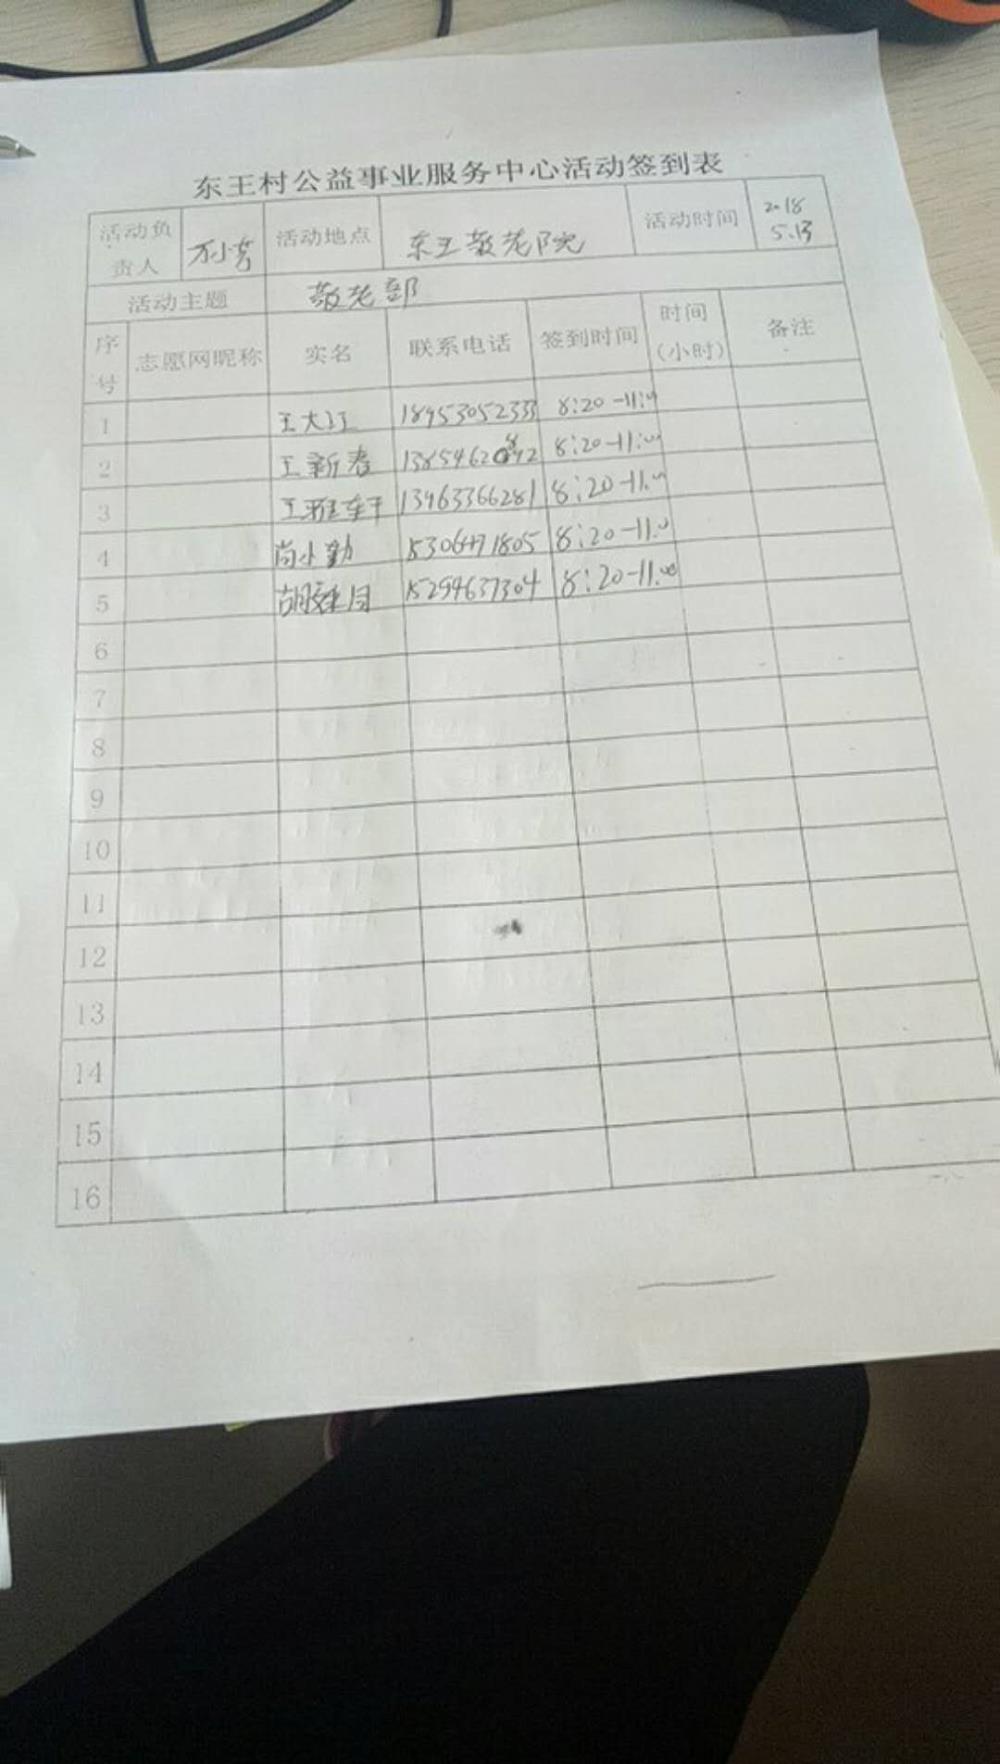 东王村公益事业服务中心活动签到表
活动负责人 活动地点 东王敬老院 活动时间 2018 5.13
活动主题 敬老部
序号 志愿网昵称 实名 联系电话 签到时间 时间(小时) 备注
1 王大江 18953052333 8:20-11:00
2 王新春 8:20-11:00
3 13463366281 8:20-11:00
4 尚小勤 8:20-11:00
5 15294637304 8:20-11:00
6
7
8
9
10
11
12
13
14
15
16